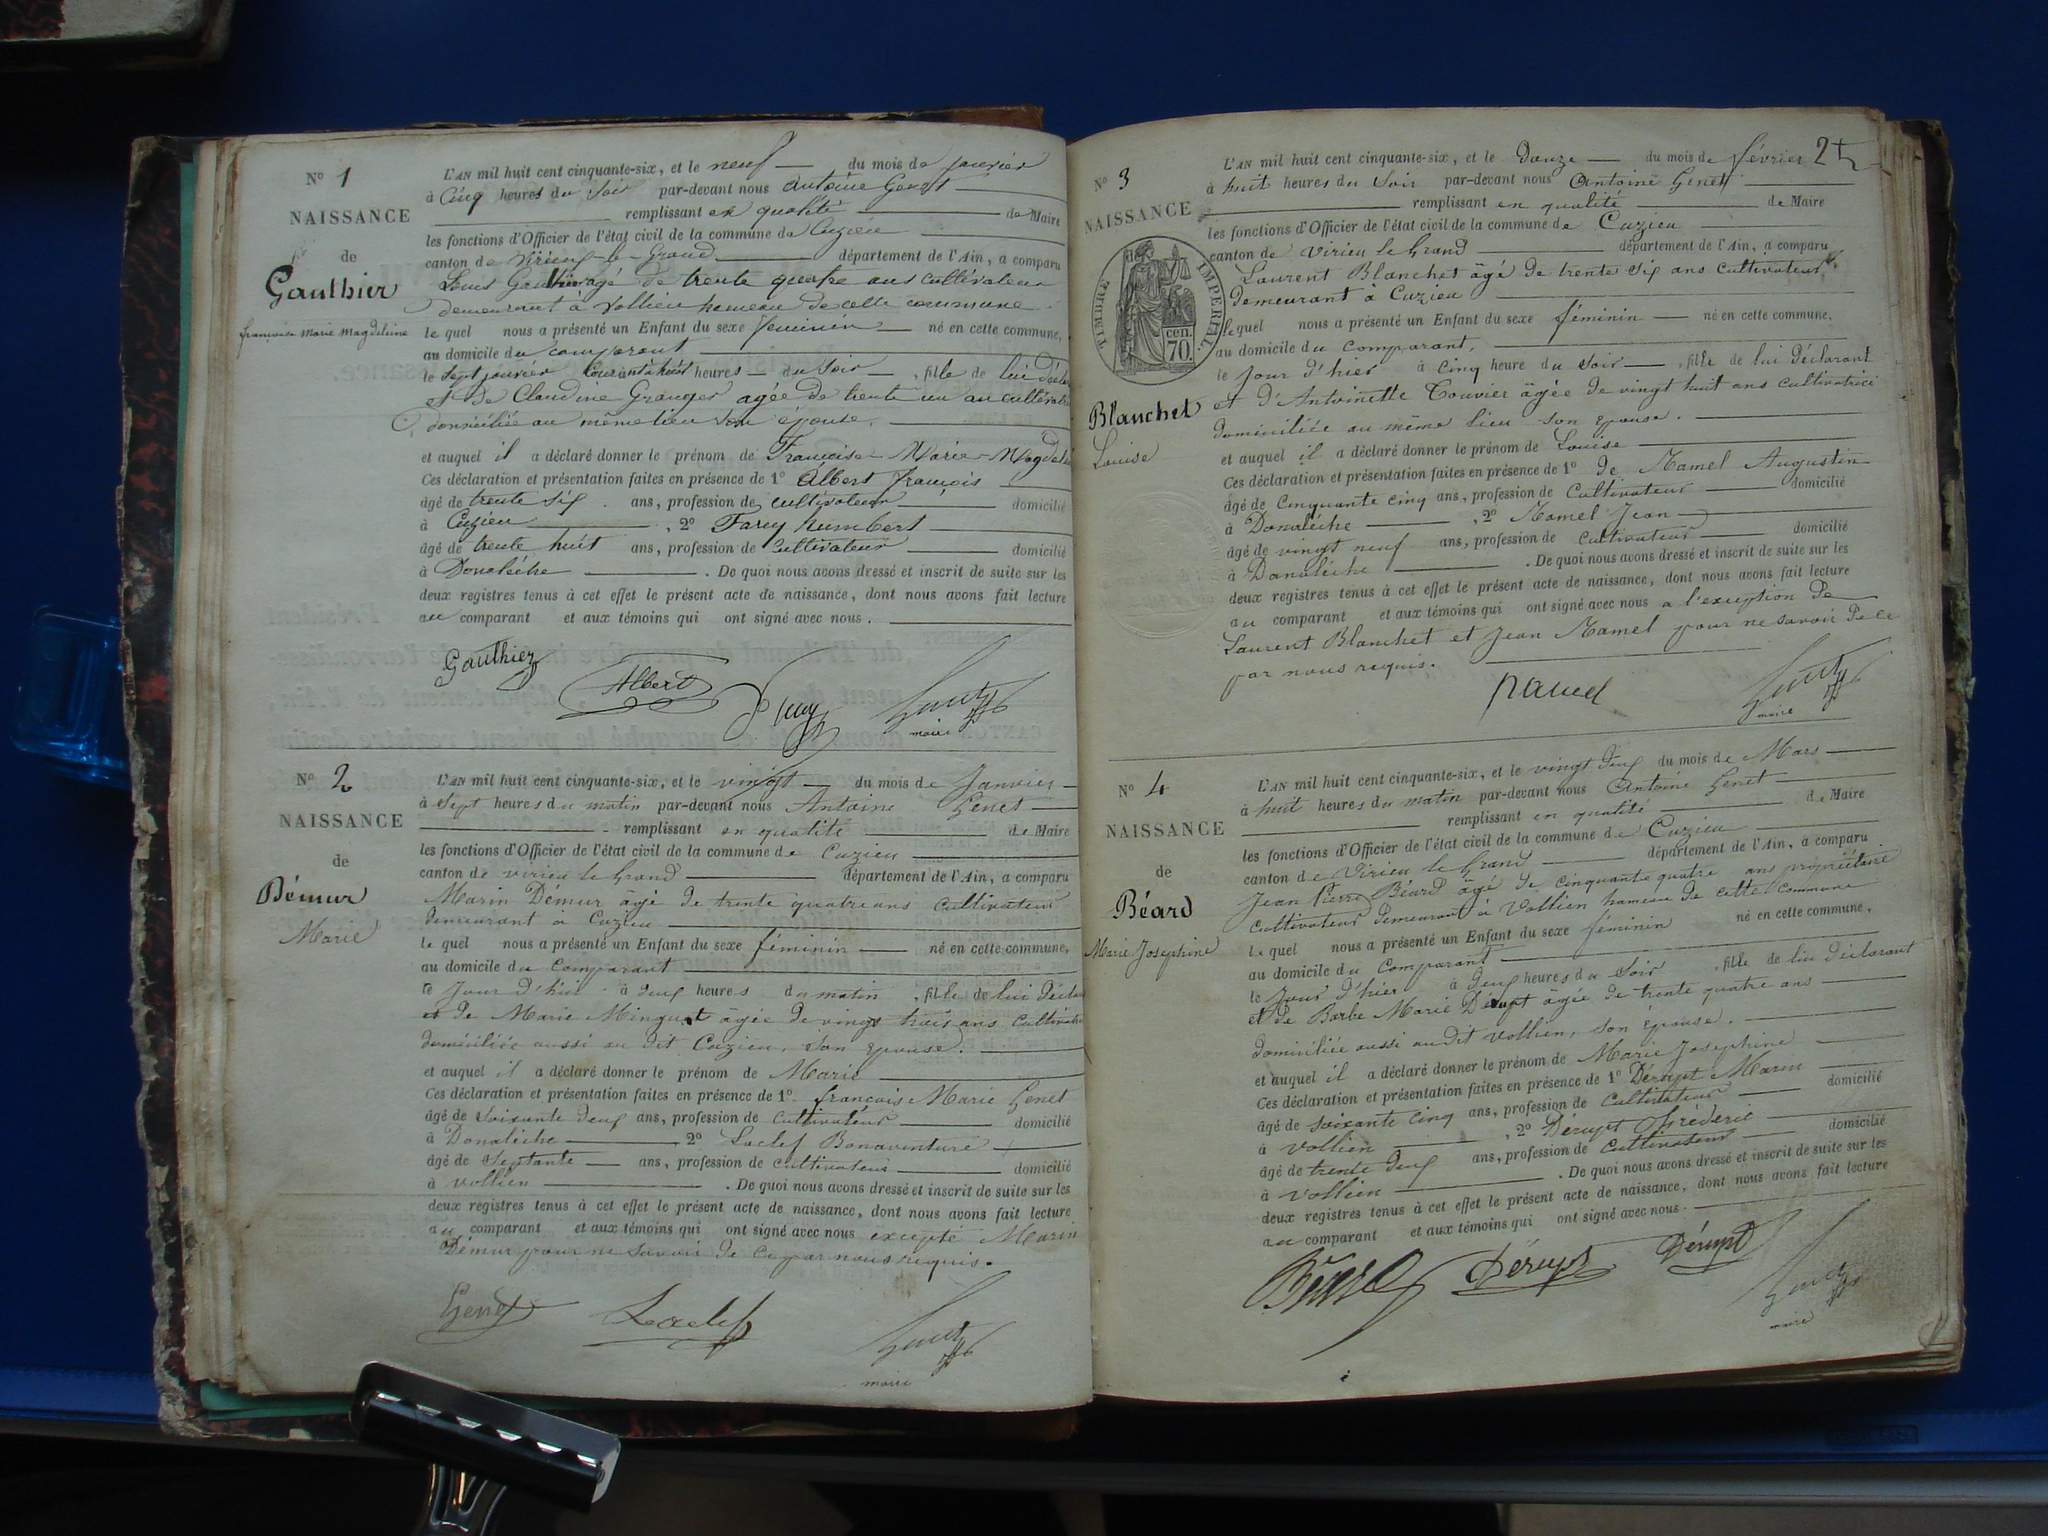 N° 1
NAISSANCE
de
Gauthier
françoise marie magdeleine
L'AN mil huit cent cinquante-six, et le neuf du mois de janvier
à cinq heures du soir par-devant nous Antoine Genet
remplissant en qualité de Maire
les fonctions d'Officier de l'état civil de la commune de Cuzieu
canton de Virieu-le-Grand département de l'Ain, a comparu
Louis Gauthier âgé de trente quatre ans cultivateur
demeurant à Vollien hameau de cette commune
le quel nous a présenté un Enfant du sexe feminin né en cette commune,
au domicile du comparant
le sept janvier courant à huit heures du soir, fille de lui décla
et de Claudine Granger agée de trente un an cultivatr
domiciliée au même lieu son épouse.
et auquel il a déclaré donner le prénom de Francoise-Marie-Magdel
Ces déclaration et présentation faites en présence de 1° Albert françois
âgé de trente six ans, profession de cultivateur domicilié
à Cuzieu, 2° Farey humbert
âgé de trente huit ans, profession de cultivateur domicilié
à Donalèche. De quoi nous avons dressé et inscrit de suite sur les
deux registres tenus à cet effet le présent acte de naissance, dont nous avons fait lecture
au comparant et aux témoins qui ont signé avec nous.
Gauthier
Albert
maire
N° 2
NAISSANCE
de
Démur
Marie
L'AN mil huit cent cinquante-six, et le vingt du mois de Janvier
à sept heures du matin par-devant nous Antoine Genet
remplissant en qualité de Maire
les fonctions d'Officier de l'état civil de la commune de Cuzieu
canton de virieu le Grand département de l'Ain, a comparu
Marin Démur âgé de trente quatre ans cultivateur
demeurant à Cuzieu
le quel nous a présenté un Enfant du sexe féminin né en cette commune,
au domicile du comparant
le Jour d'hier à deux heures du matin, fille de lui décla
et de Marie Minguet âgée de vingt trois ans cultivatr
domiciliée aussi au dit Cuzieu, son épouse.
et auquel il a déclaré donner le prénom de Marie
Ces déclaration et présentation faites en présence de 1° françois Marie Genet
âgé de soixante deux ans, profession de cultivateur domicilié
à Donalèche 2° Laclef Bonaventure
âgé de septante ans, profession de cultivateur domicilié
à vollien. De quoi nous avons dressé et inscrit de suite sur les
deux registres tenus à cet effet le présent acte de naissance, dont nous avons fait lecture
au comparant et aux témoins qui ont signé avec nous excepté Marin
Démur pour ne savoir de ce par nous requis.
Genet
Laclef
maire
2
N° 3
NAISSANCE
TIMBRE IMPERIAL
70 cen.
Blanchet
Louise
L'AN mil huit cent cinquante-six, et le douze du mois de février
à huit heures du soir par-devant nous Antoine Genet
remplissant en qualité de Maire
les fonctions d'Officier de l'état civil de la commune de Cuzieu
canton de Virieu le Grand département de l'Ain, a comparu
Laurent Blanchet âgé de trente six ans cultivateur
demeurant à Cuzieu
le quel nous a présenté un Enfant du sexe féminin né en cette commune,
au domicile du comparant,
le jour d'hier à cinq heure du soir, fille de lui déclarant
et d'Antoinette Touvier âgée de vingt huit ans cultivatrice
domiciliée au même lieu son épouse.
et auquel il a déclaré donner le prénom de Louise
Ces déclaration et présentation faites en présence de 1° de Mamel Augustin
âgé de cinquante cinq ans, profession de cultivateur domicilié
à Donalèche, 2° Mamel Jean
âgé de vingt neuf ans, profession de cultivateur domicilié
à Donalèche. De quoi nous avons dressé et inscrit de suite sur les
deux registres tenus à cet effet le présent acte de naissance, dont nous avons fait lecture
au comparant et aux témoins qui ont signé avec nous a l'exception de
Laurent Blanchet et Jean Mamel pour ne savoir de ce
par nous requis.
maire
N° 4
NAISSANCE
de
Béard
Marie Josephine
L'AN mil huit cent cinquante-six, et le vingt deux du mois de Mars
à huit heures du matin par-devant nous Antoine Genet
remplissant en qualité de Maire
les fonctions d'Officier de l'état civil de la commune de Cuzieu
canton de Virieu le Grand département de l'Ain, a comparu
Jean Pierre Béard âgé de cinquante quatre ans propriétaire
cultivateur demeurant à Vollien hameau de cette commune
le quel nous a présenté un Enfant du sexe féminin né en cette commune,
au domicile du comparant
le jour d'hier à deux heures du soir, fille de lui déclarant
et de Barbe Marie Dérupt âgée de trente quatre ans
domiciliée aussi au dit vollien, son épouse.
et auquel il a déclaré donner le prénom de Marie Josephine
Ces déclaration et présentation faites en présence de 1° Dérupt Marin
âgé de soixante cinq ans, profession de cultivateur domicilié
à vollien, 2° Dérupt fréderic
âgé de trente deux ans, profession de cultivateur domicilié
à vollien. De quoi nous avons dressé et inscrit de suite sur les
deux registres tenus à cet effet le présent acte de naissance, dont nous avons fait lecture
au comparant et aux témoins qui ont signé avec nous.
Béard
Dérupt
Dérupt
maire